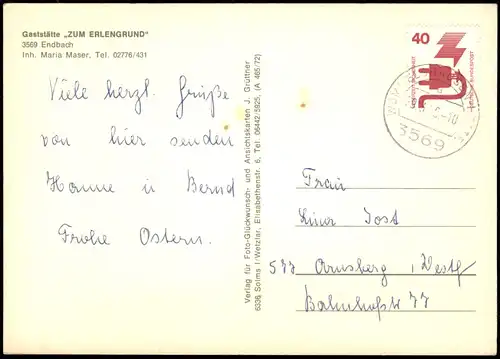 Gaststätte „ZUM ERLENGRUND"
3569 Endbach
Inh. Maria Maser, Tel. 02776/431
Viele herzl. Grüße
von hier senden
Hanne u Bernd
Frohe Ostern.
Verlag für Foto-Glückwunsch- und Ansichtskarten J. Grüttner
6336 Solms l/Wetzlar, Elisabethenstr. 6, Tel. 06442/5925, (A 465/72)
40
DEUTSCHE BUNDESPOST
3569
Frau
Jost
577 Arnsberg i, Westf
Bahnhofstr 77